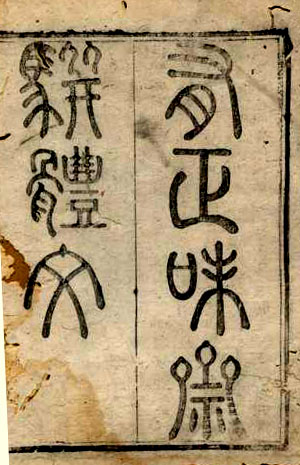 有正味齋
駢體文